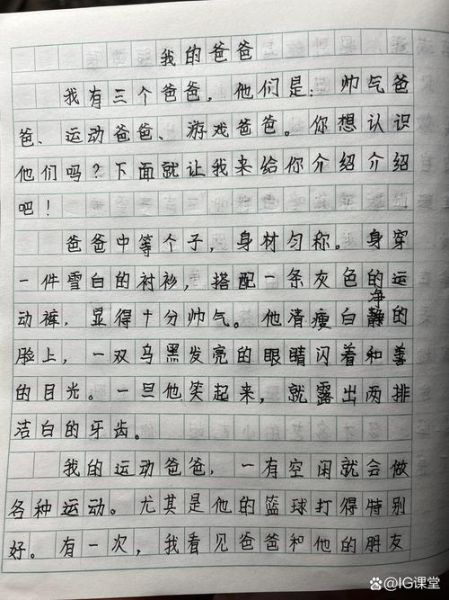 我的爸爸
我有三个爸爸，他们是：帅气爸
爸、运动爸爸、游戏爸爸。你想认识
他们吗？下面就让我来给你介绍介绍
吧！
爸爸中等个子，身材匀称。身穿
一件雪白的衬衫，搭配一条灰色的运
动裤，显得十分帅气。他清瘦白净的
脸上，一双乌黑发亮的眼睛闪着和善
的目光。一旦他笑起来，就露出两排
洁白的牙齿。
我的运动爸爸，一有空闲就会做
各种运动。尤其是他的篮球打得特别
好。有一次，我看见爸爸和他的朋友
@IG课堂